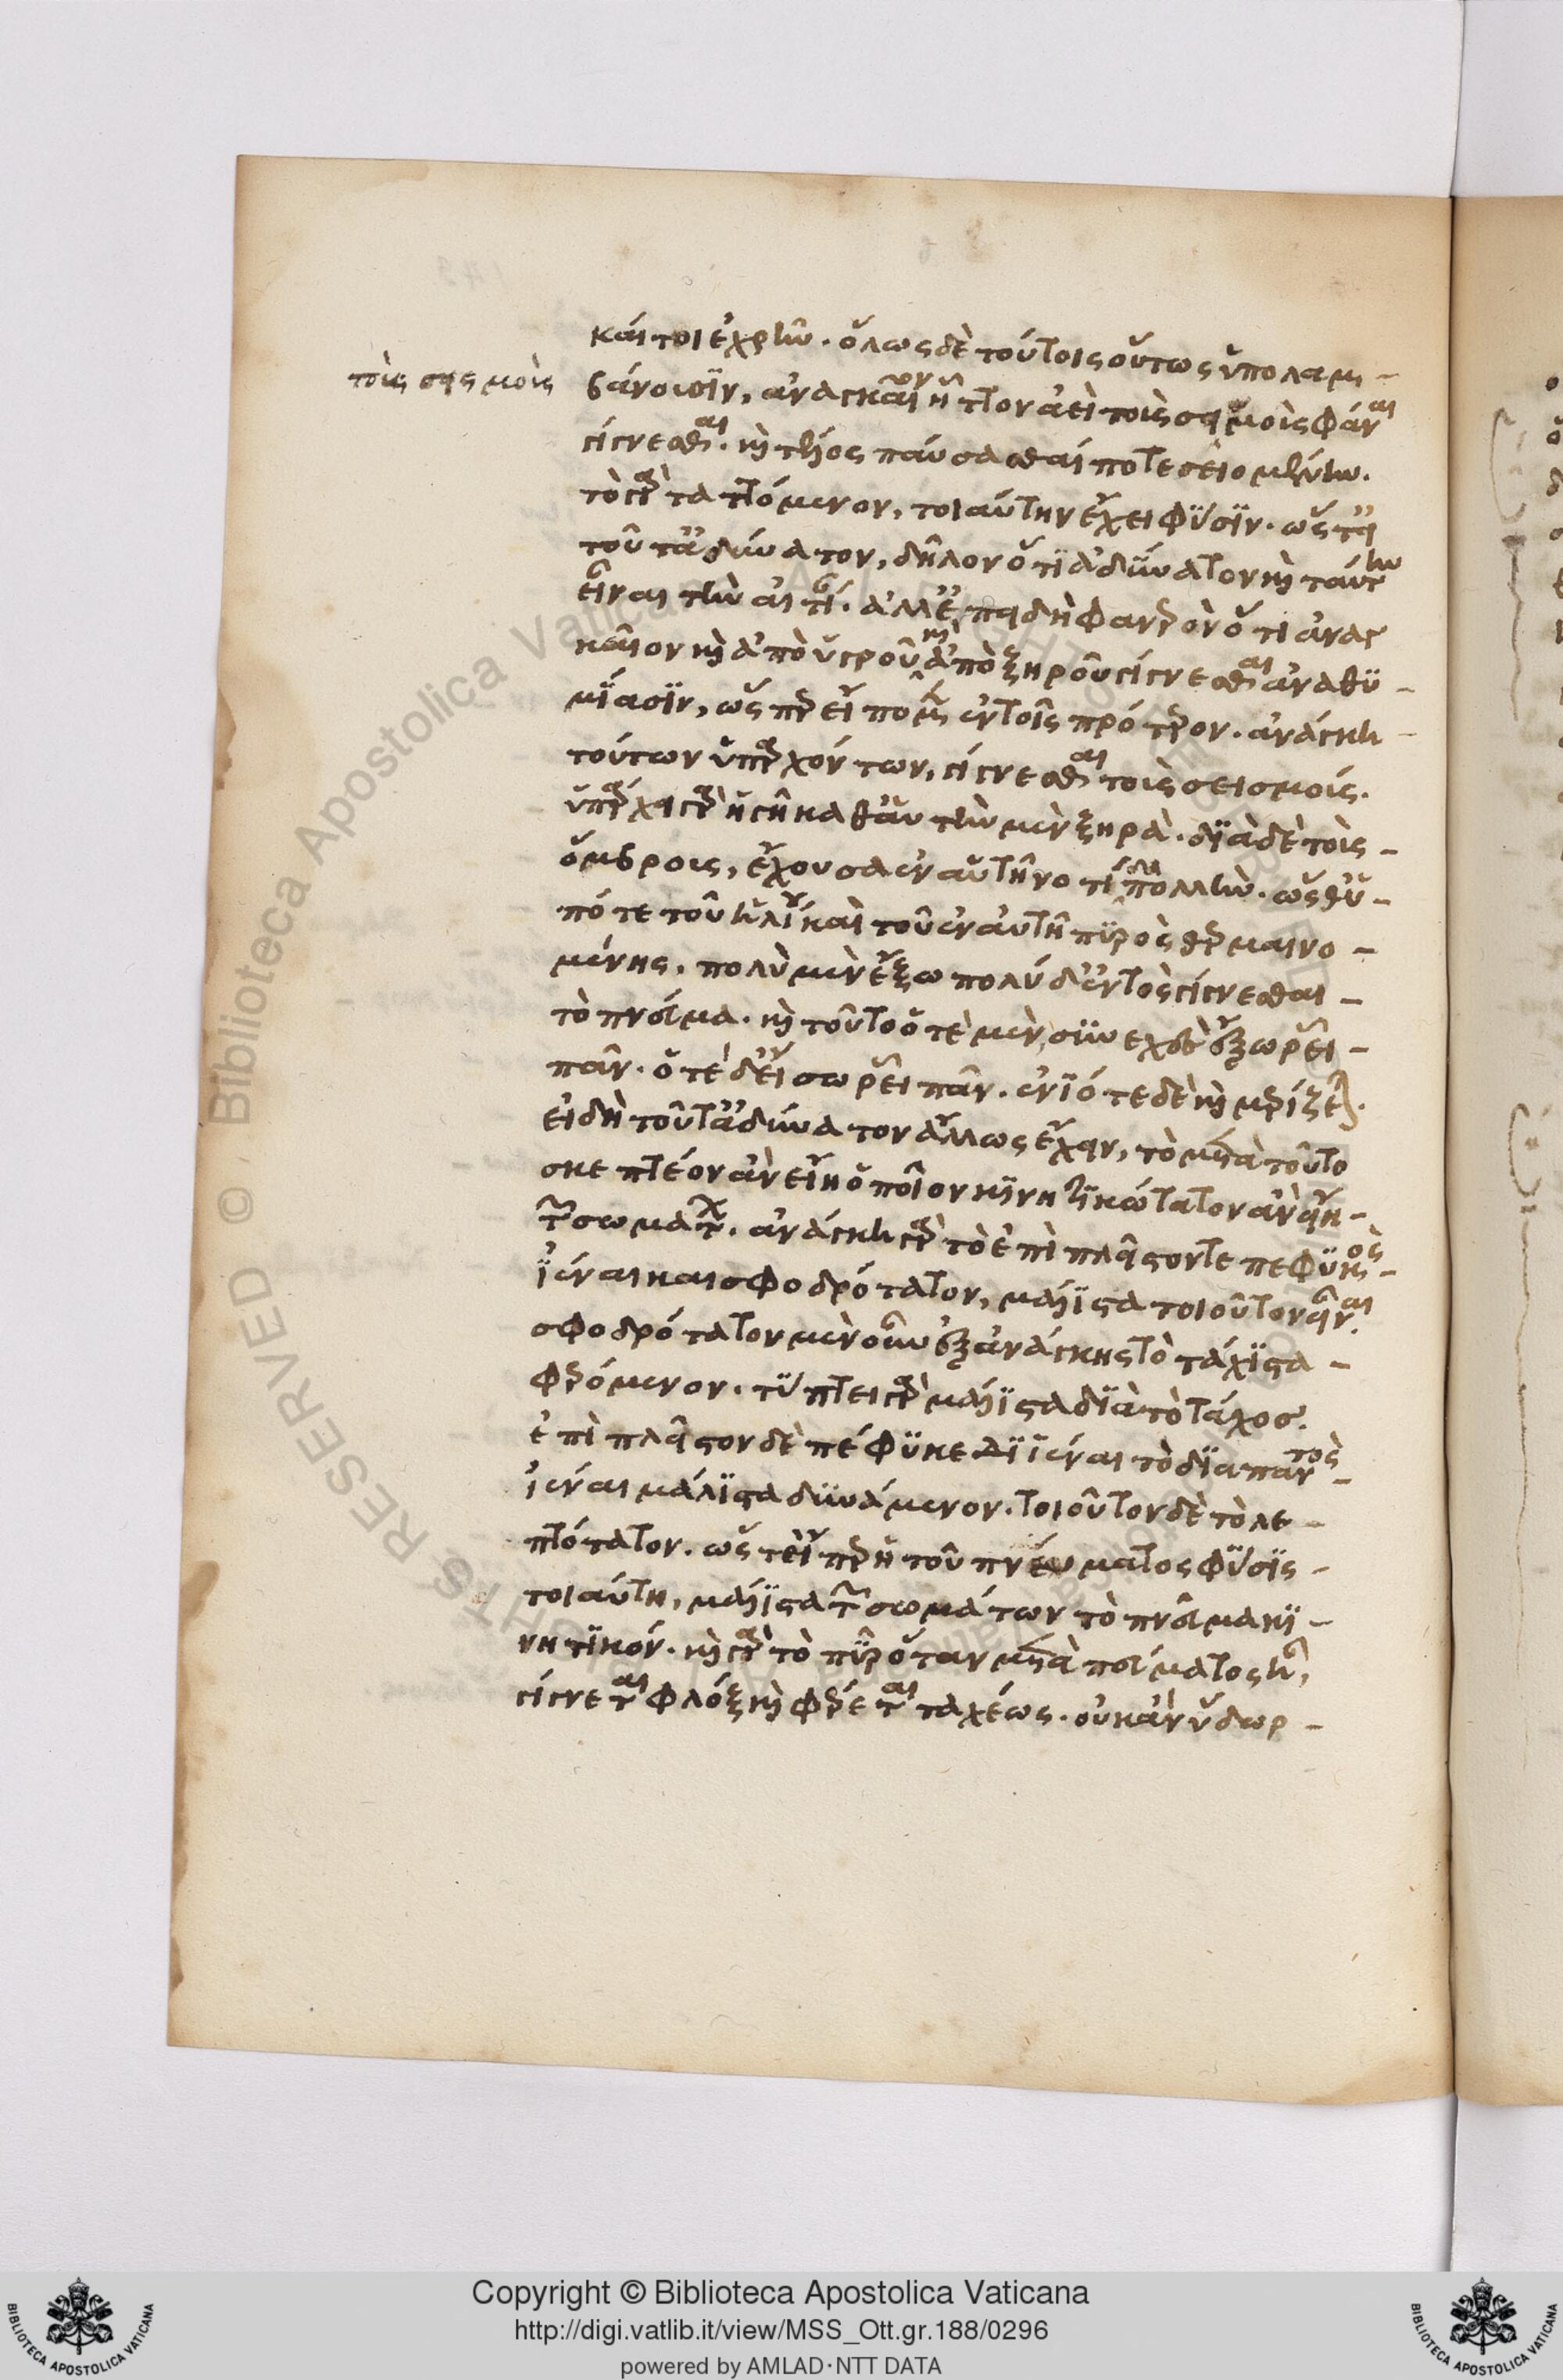 καίτοι ἐχρῆν. ὅλως δὲ τούτοις οὕτως ὑπολαμ-
τοὺς σεισμοὺς
βάνουσϊν, ἀναγκαῖον ἧττον ἀεὶ τοὺς σεισμοὺς φάναι
γίγνεσθαι. καὶ τέλος παύσασθαί ποτε σειομένην.
τὸ γὰρ ταττόμενον, τοιαύτην ἔχει φϋσϊν. ὥστ' εἰ
τοῦτ' ἀδύνατον, δῆλον ὅτϊ ἀδύνατον καὶ ταύτην
εἶναι τὴν αἰτίαν. ἀλλ' ἐπειδὴ φανερὸν ὅτι ἀναγ
καῖον καὶ ἀπὸ ὑγροῦ καὶ ἀπὸ ξηροῦ γίγνεσθαι ἀναθϋ-
μϊασϊν, ὥσπερ εἴπομεν ἐν τοῖς πρότερον. ἀνάγκη
τούτων ὑπαρχόντων, γίγνεσθαι τοὺς σεισμούς.
ὑπάρχει γὰρ ἡ γῆ καθ' αὑτὴν μὲν ξηρὰ. δϊὰ δὲ τοὺς-
ὄμβρους, ἔχουσα ἐν αὑτῆ νοτίδα πολλὴν. ὥσθ' ὑ-
πό τε τοῦ ἡλίου καὶ τοῦ ἐν αὐτῆ πϋρὸς θερμαινο-
μένης. πολὺ μὲν ἔξω πολύ δ' ἐντὸς γίγνεσθαι-
τὸ πνεῦμα. καὶ τοῦτο ὁτὲ μὲν, συνεχὲς ἔξω ῥεῖ-
πᾶν. ὁτὲ δ' εἴσω ῥεῖ πᾶν. ἐνϊότε δὲ καὶ μερίζεται.
εἰ δὴ τοῦτ' ἀδύνατον ἄλλως ἔχειν, τὸ μετὰ τοῦτο
σκεπτέον ἂν εἴη ὁποῖον κϊνητϊκώτατον ἂν εἴη-
τῶν σωμάτων. ἀνάγκη γὰρ τὸ ἐπὶ πλεῖστόν τε πεφϋκὸς-
ϊέναι καὶ σφοδρότατον, μάλϊστα τοιοῦτον εἶναι.
σφοδρότατον μὲν οὖν ἐξ ἀνάγκης τὸ τάχϊστα-
φερόμενον. τϋπτει γὰρ μάλϊστα δϊὰ τὸ τάχος.
ἐπὶ πλεῖστον δὲ πέφϋκε δϊϊέναι τὸ δϊα παντὸς-
ἰέναι μάλϊστα δϋνάμενον. τοιοῦτον δὲ τὸ λε-
πτότατον. ὥστ' εἴπερ ἡ τοῦ πνεύματος φϋσϊς-
τοιαύτη, μάλϊστα τῶν σωμάτων τὸ πνεῦμα κϊ-
νητϊκόν. καὶ γὰρ τὸ πῦρ ὅταν μετὰ πνεύματος ἦ,
γίγνεται φλόξ καὶ φέρεται ταχέως. οὐκ ἂν ὕδωρ-
Copyright © Biblioteca Apostolica Vaticana
http://digi.vatlib.it/view/MSS_Ott.gr.188/0296
powered by AMLAD·NTT DATA